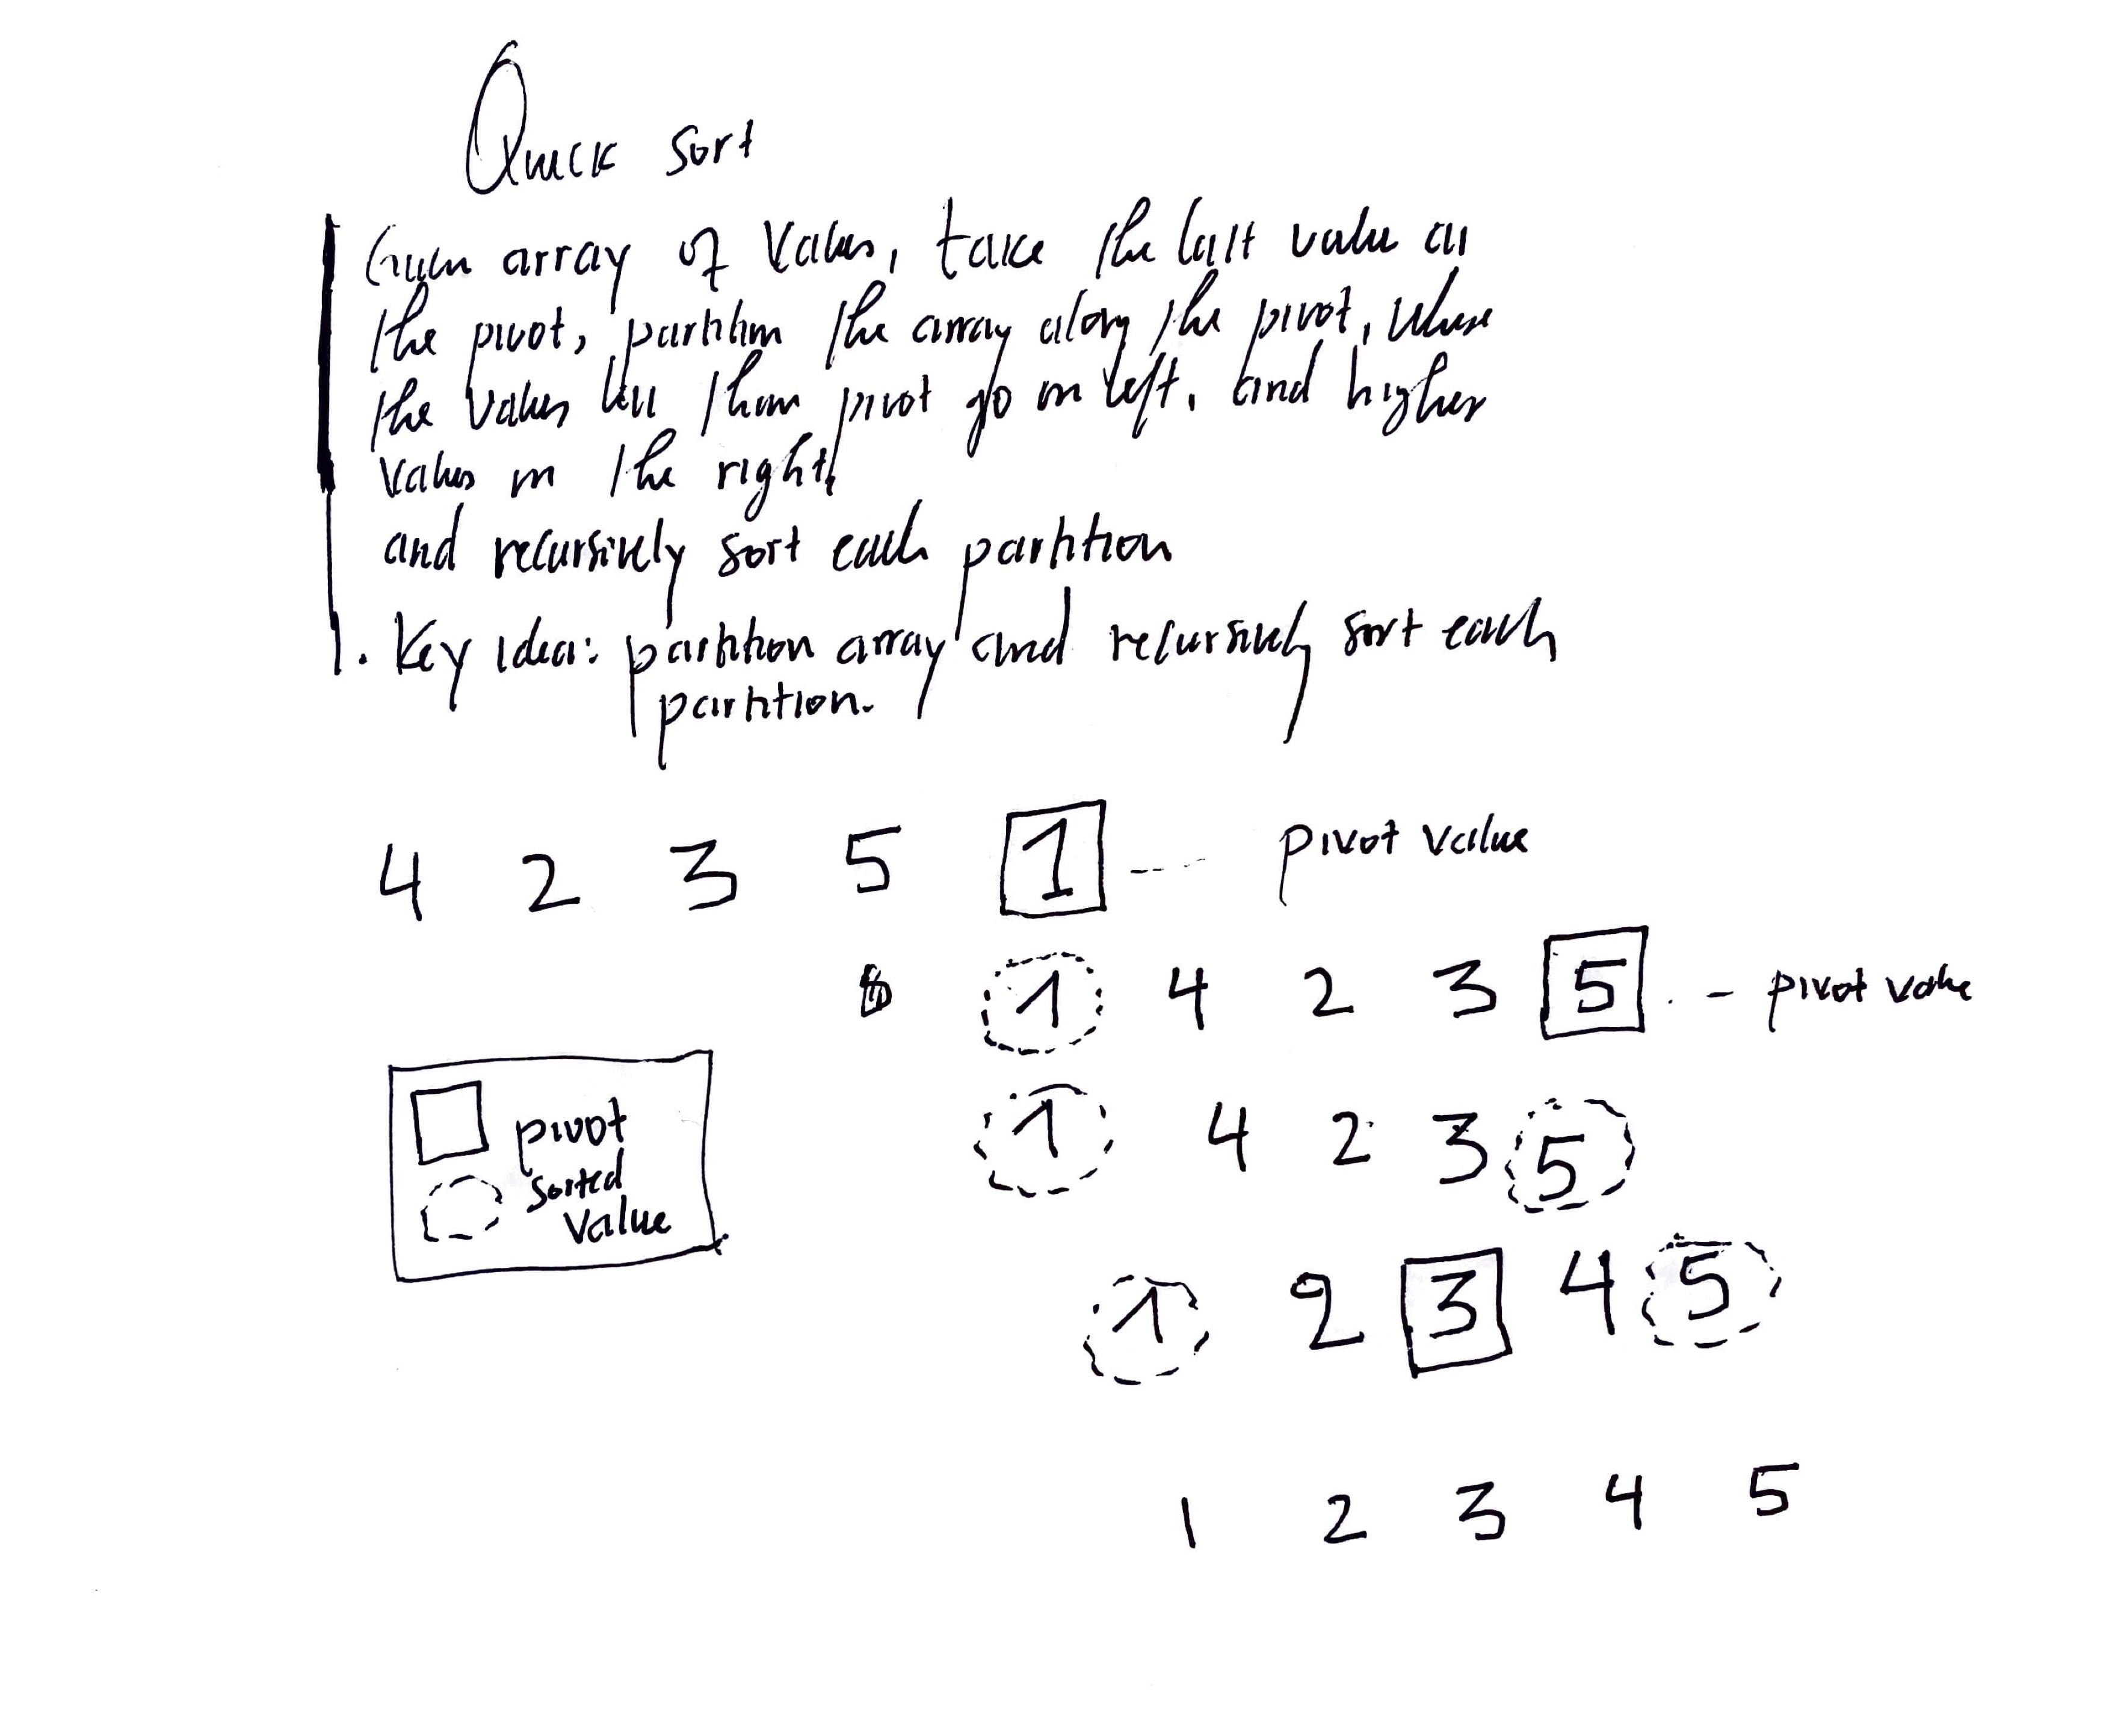 Quick sort
Given array of values, take the last value as
the pivot, partition the array along the pivot, where
the values less than pivot go on left, and higher
values on the right,
and recursively sort each partition
1. Key idea: partition array and recursively sort each
partition.
4 2 3 5 1 --- pivot value
1 4 2 3 5 -- pivot value
1 4 2 3 5
pivot
sorted
value
1 2 3 4 5
1 2 3 4 5